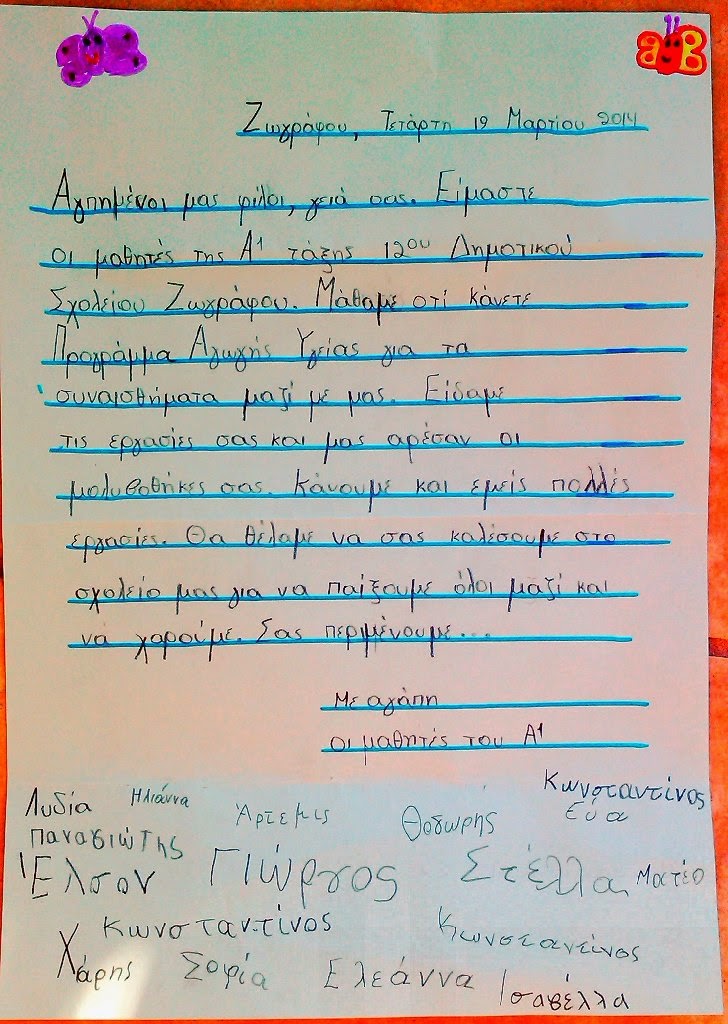 αΒ
Ζωγράφου, Τετάρτη 19 Μαρτίου 2014
Αγπημένοι μας φίλοι, γειά σας. Είμαστε
οι μαθητές της Α1 τάξης 12ου Δημοτικού
Σχολείου Ζωγράφου. Μάθαμε οτί κάνετε
Πρόγραμμα Αγωγής Υγείας για τα
συναισθήματα μαζί με μας. Είδαμε
τις εργασίες σας και μας αρέσαν οι
μολυβοθήκες σας. Κάνουμε και εμείς πολλές
εργασίες. Θα θέλαμε να σας καλέσουμε στο
σχολείο μας για να παίξουμε όλοι μαζί και
να χαρούμε. Σας περιμένουμε...
Με αγάπη
οι μαθητές του Α1
Λυδία Ηλιάννα Άρτεμις Θοδωρής Κωνσταντίνος
Εύα
Παναγιώτης
Έλσον Γιώργος Στέλλα Ματέο
Κωνσταντίνος Κωνσταντίνος
Χάρης Σοφία Ελεάννα Ισαβέλλα